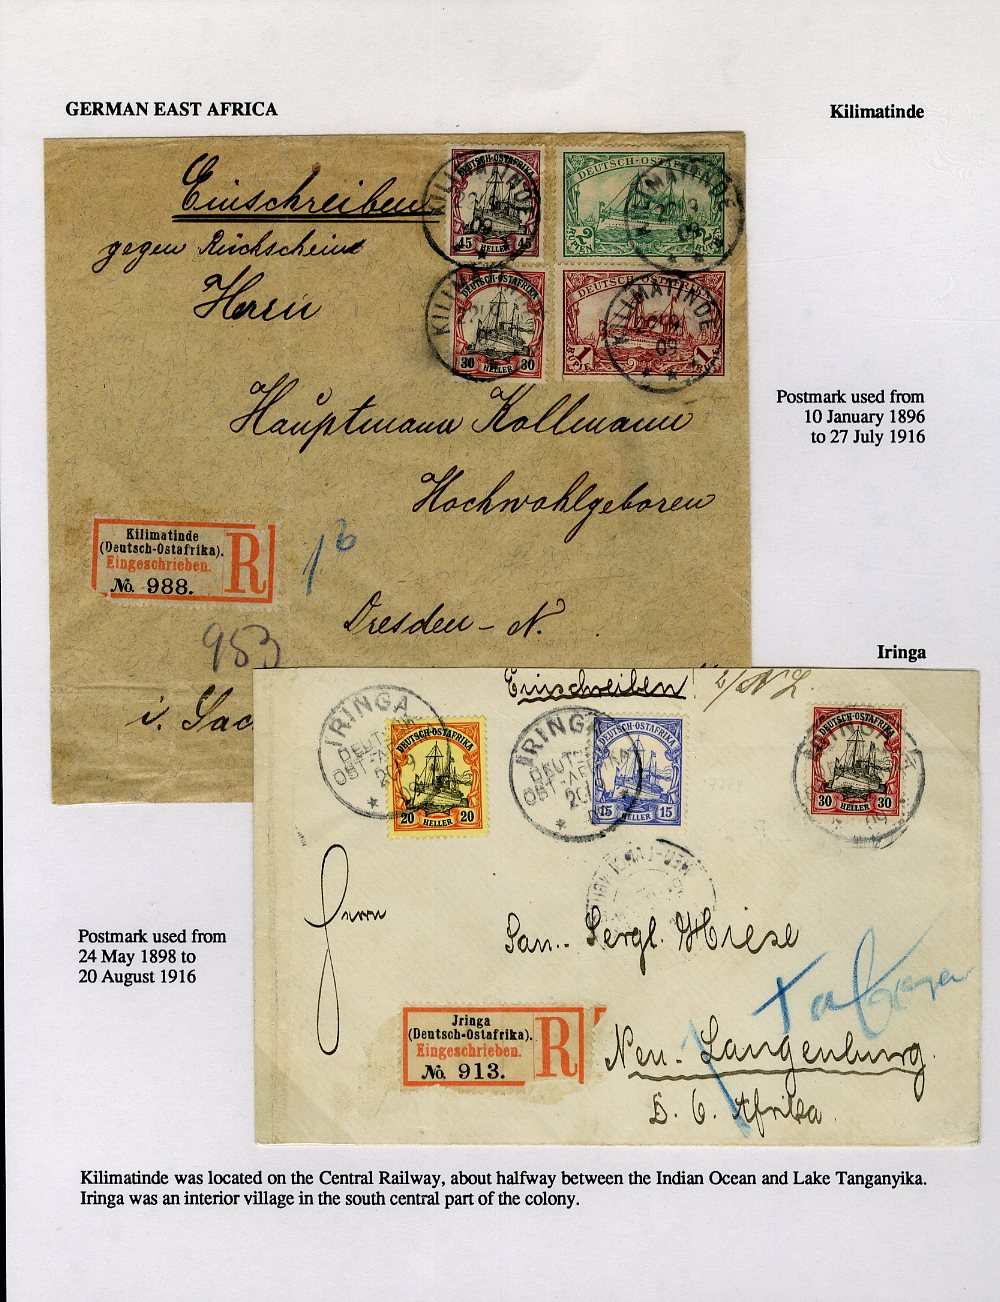 GERMAN EAST AFRICA
Kilimatinde
Einschreiben
gegen Rückschein
Herrn
Hauptmann Kollmann
Hochwohlgeboren
Dresden - N.
i. Sac
DEUTSCH-OSTAFRIKA
45 HELLER 45
DEUTSCH-OSTAFRIKA
2 RUPIEN RUPIEN 2
DEUTSCH-OSTAFRIKA
30 HELLER 30
DEUTSCH-OSTAFRIKA
1 RUPIE RUPIE 1
KILIMATINDE
09
KILIMATINDE
09
KILIMATINDE
KILIMATINDE
09
Postmark used from
10 January 1896
to 27 July 1916
Kilimatinde
(Deutsch-Ostafrika).
Eingeschrieben.
No. 988.
R
16
953
Iringa
Einschreiben!
IRINGA
DEUTSCH
OST-AFRIKA
IRINGA
DEUTSCH
OST-AFRIKA
DEUTSCH-OSTAFRIKA
20 HELLER 20
DEUTSCH-OSTAFRIKA
15 HELLER 15
DEUTSCH-OSTAFRIKA
30 HELLER 30
Herrn
San.- Sergt. Wiese
Neu-Langenburg.
D. O. Afrika.
Jringa
(Deutsch-Ostafrika).
Eingeschrieben.
No. 913.
R
Postmark used from
24 May 1898 to
20 August 1916
Kilimatinde was located on the Central Railway, about halfway between the Indian Ocean and Lake Tanganyika.
Iringa was an interior village in the south central part of the colony.